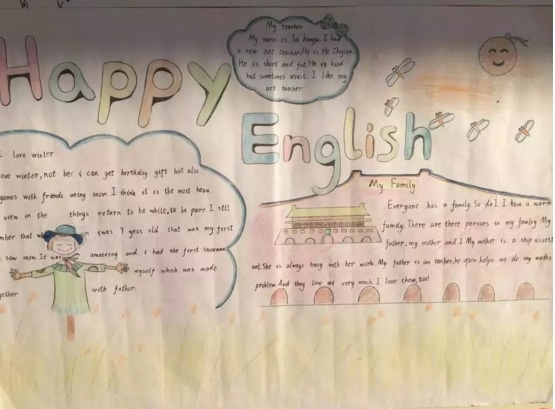 Happy
English
My teacher
My name is
a new art teacher. He is
He is short and fat. He is kind
but sometimes strict. I like my
art teacher.
I love winter
ove winter, not bec i can get birthday gift but also
games with friends using snow. I think it is the most beau
view on the things return to be white, to be pure. I still
mber that w I was 7 years old that was my first
saw snow. It was amazing and i had the first snowman
myself which was made
gether with father.
My Family
Everyone has a family. So do I. I have a warm
family. There are three persons in my family. My
father, my mother and I. My mother is a shop assist
ant. She is always busy with her work. My father is an teacher, he often helps me do my maths
problem. And they love me very much. I love them, too!